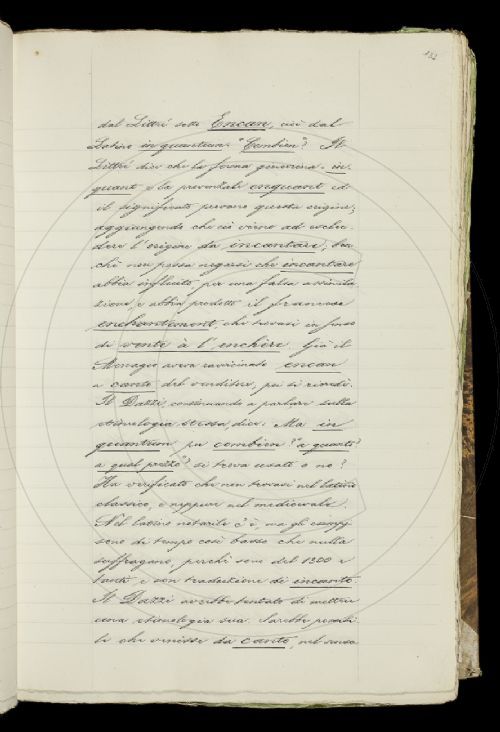 132
dal Littré sotto Encan, cioè dal
Latino in quantum "Combien"? Il
Littré dice che la forma ginevrina in-
quant e la provenzale enquant ed
il significato provano questa origine;
aggiungendo che ciò viene ad esclu-
dere l'origine da incantare, ben-
chè non possa negarsi che incantare
abbia influito per una falsa assimila
zione, e abbia prodotto il francese
enchantement che trovasi in fonso
di vente à l'enchère. Già il
Menagio aveva ravvicinato encan
a canto del venditore, poi si ricordò.
Il Dazzi, continuando a parlare sulla
etimologia stessa, dice: Ma in
quantum per combien? "a quanto?
a qual prezzo" si trova usato o no?
Ha verificato che non trovasi nel latino
classico, e neppure nel medioevale.
Nel latino notarile c'è, ma gli esempi
sono di tempo così basso che nulla
suffragano, perchè sono del 1300 e
tanti, e son traduzione di incanto.
Il Dazzi avrebbe tentato di mettere
una etimologia sua. Sarebbe possibi
le che venisse da canto, nel senso